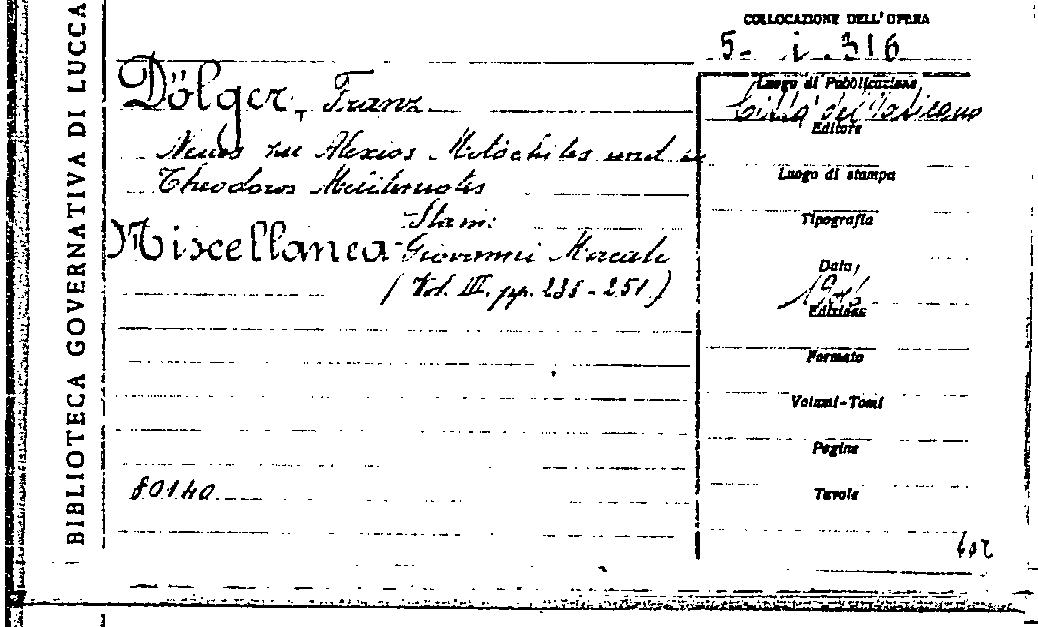 BIBLIOTECA GOVERNATIVA DI LUCCA
COLLOCAZIONE DELL'OPERA
5- i. 316
Dölger, Franz
Neues zu Alexios Metochites und zu
Theodoros Meliteniotes
Stan:
Miscellanea Giovanni Mercati
(Vol. III. pp. 238-251)
80140
Luogo di Pubblicazione
Città del Vaticano
Editore
Luogo di stampa
Tipografia
Data
Edizione
Formato
Volumi-Tomi
Pagine
Tavole